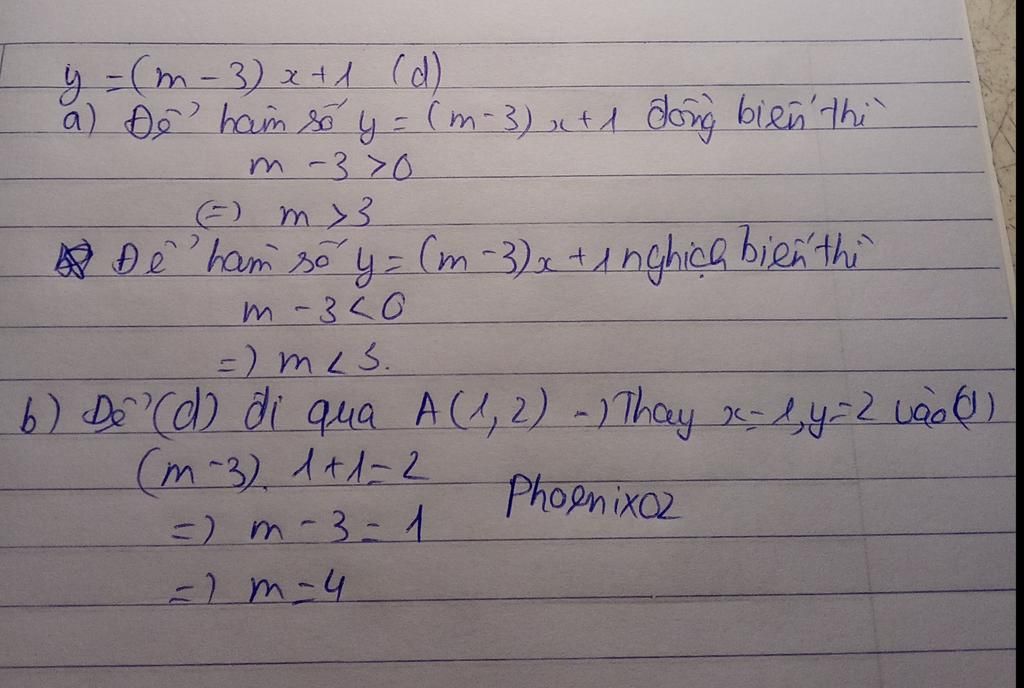 y = (m - 3) x + 1 (d)
a) Để hàm số y = (m - 3) x + 1 đồng biến thì
m - 3 > 0
(=) m > 3
Để hàm số y = (m - 3)x + 1 nghịch biến thì
m - 3 < 0
=) m < 3.
b) Để (d) đi qua A(1, 2) -) Thay x = 1, y = 2 vào (d)
(m - 3). 1 + 1 = 2
Phoenix02
=) m - 3 = 1
=) m = 4